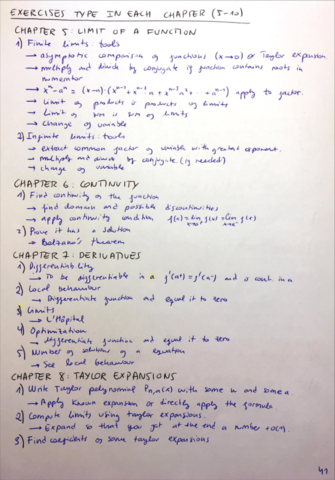 EXERCISES TYPE IN EACH CHAPTER (5-10)
CHAPTER 5: LIMIT OF A FUNCTION
1) Finite limits: tools
→ asymptotic comparison of functions (x→0) or Taylor expansion
→ multiply and divide by conjugate if function contains roots in
numerator
→ xⁿ-aⁿ = (x-a)·(xⁿ⁻¹+xⁿ⁻²a+xⁿ⁻³a²+...+aⁿ⁻¹) apply to factor.
→ Limit of products is products of limits
→ Limit of sum is sum of limits
→ change of variable
2) Infinite limits: tools
→ extract common factor of variable with greatest exponent.
→ multiply and divide by conjugate (if needed)
→ change of variable
CHAPTER 6: CONTINUITY
1) Find continuity of the function
→ find domain and possible discontinuities
→ apply continuity condition
2) Prove it has a solution
→ Bolzano's theorem
CHAPTER 7: DERIVATIVES
1) Differentiability
→ To be differentiable in a f'(a⁺)=f'(a⁻) and is cont. in a
2) Local behaviour
→ Differentiate function and equal it to zero
3) Limits
→ L'Hôpital
4) Optimization
→ differentiate function and equal it to zero
5) Number of solutions of a equation
→ See local behaviour
CHAPTER 8: TAYLOR EXPANSIONS
1) Write Taylor polynomial Pn,a(x) with some n and some a
→ Apply known expansion or directly apply the formula
2) Compute limits using taylor expansions.
→ Expand so that you get at the end a number + o(x).
3) Find coeficients of some taylor expansions